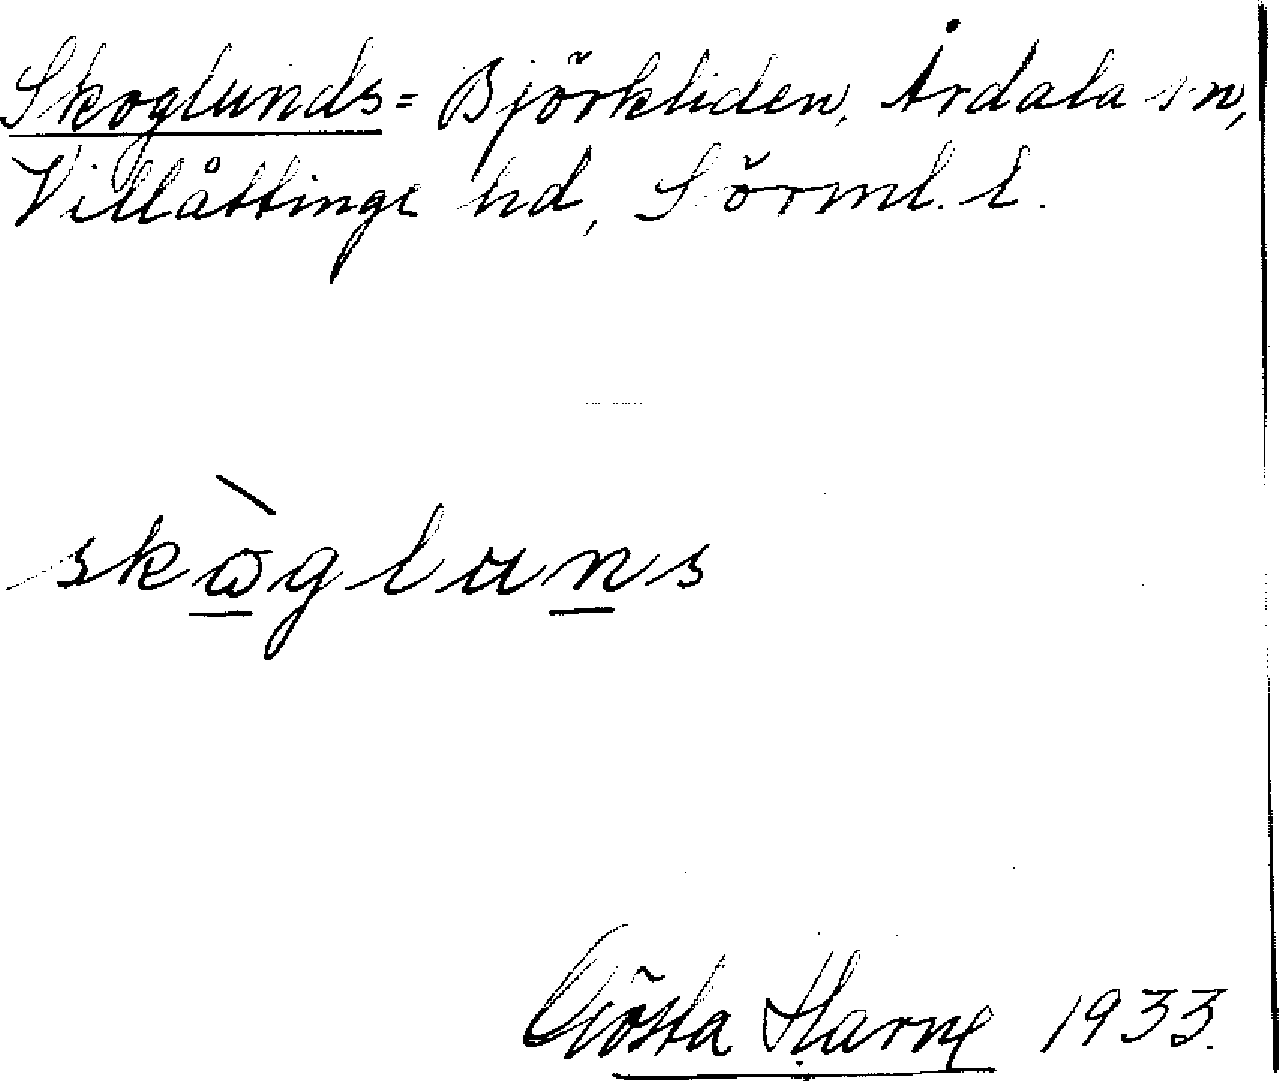 Skoglunds= Björkliden, Årdala sn,
Villåttinge hd, Sörml. l.
skògluns
Gösta Harne 1933.